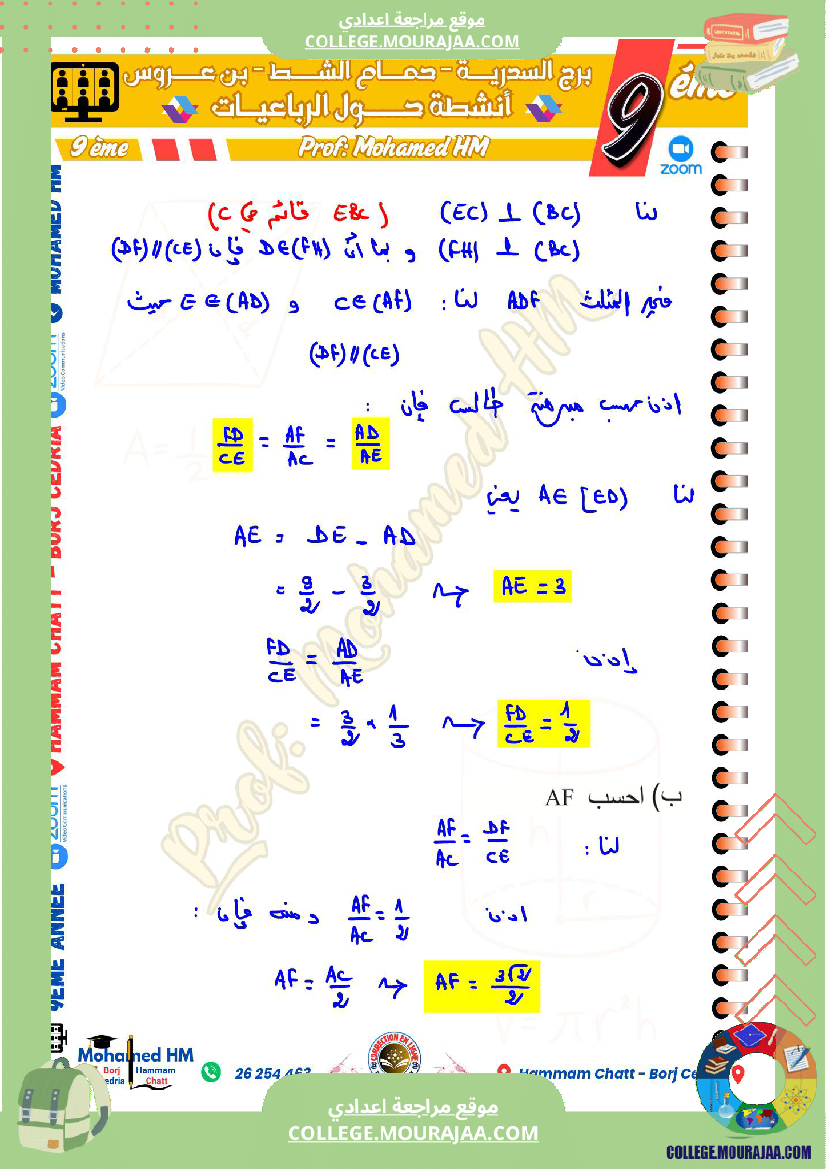 موقع مراجعة اعدادي
COLLEGE.MOURAJAA.COM
برج السدرية - حمام الشط - بن عروس
أنشطة حول الرباعيات
9 ème
9 ème
Prof: Mohamed HM
zoom
لنا (EC) ⊥ (BC) (EBC قائم في C)
(FH) ⊥ (BC) و بما أنّ D∈(FH) فإن (DF)//(CE)
في المثلث ADF لنا: C∈(AF) و E∈(AD) حيث
(DF)//(CE)
اذن حسب مبرهنة طالس فإن :
FD/CE = AF/AC = AD/AE
لنا A∈[ED) يعني
AE = DE - AD
= 9/2 - 3/2 ⇝ AE = 3
إذن FD/CE = AD/AE
= 3/2 × 1/3 ⇝ FD/CE = 1/2
ب) احسب AF
لنا : AF/AC = DF/CE
اذن AF/AC = 1/2 ومنه فإن :
AF = AC/2 ⇝ AF = 3√2/2
Prof: Mohamed HM
9EME ANNEE zoom HAMMAM CHATT - BORJ CEDRIA zoom MOHAMED HM
Video Communications
A = 1/2
h
r
V = πr²h
Mohamed HM
Borj
Hammam
Chatt
26 254 463
CORRECTION EN LIGNE
Hammam Chatt - Borj Ce
موقع مراجعة اعدادي
COLLEGE.MOURAJAA.COM
COLLEGE.MOURAJAA.COM